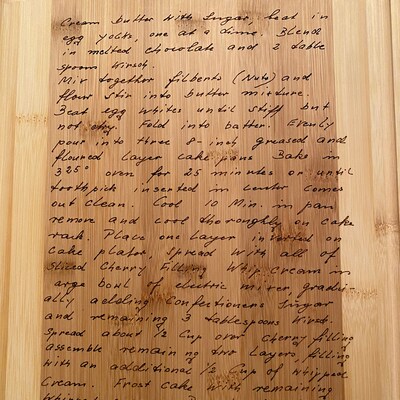 Cream butter with Sugar, beat in
egg yolks, one at a time. Blend
in melted chocolate and 2 table
spoon Kirsch.
Mix together filberts (Nuts) and
flour stir into butter mixture.
Beat egg whites until stiff but
not dry. Fold into batter. Evenly
pour into three 8-inch greased and
floured layer cake pans Bake in
325° oven for 25 minutes or until
toothpick inserted in center comes
out clean. Cool 10 Min. in pan
remove and cool thoroughly on cake
rack. Place one layer inverted on
cake plate, spread with all of
sliced Cherry Filling Whip cream in
arge bowl of electric mixer, gradu-
ally adding Confectioners Sugar
and remaining 3 tablespoons Kirsh.
Spread about 1/2 Cup over cherry filling
assemble remain ng two layers, filling
with an additional 1/2 Cup of whipped
Cream. Frost cake with remaining